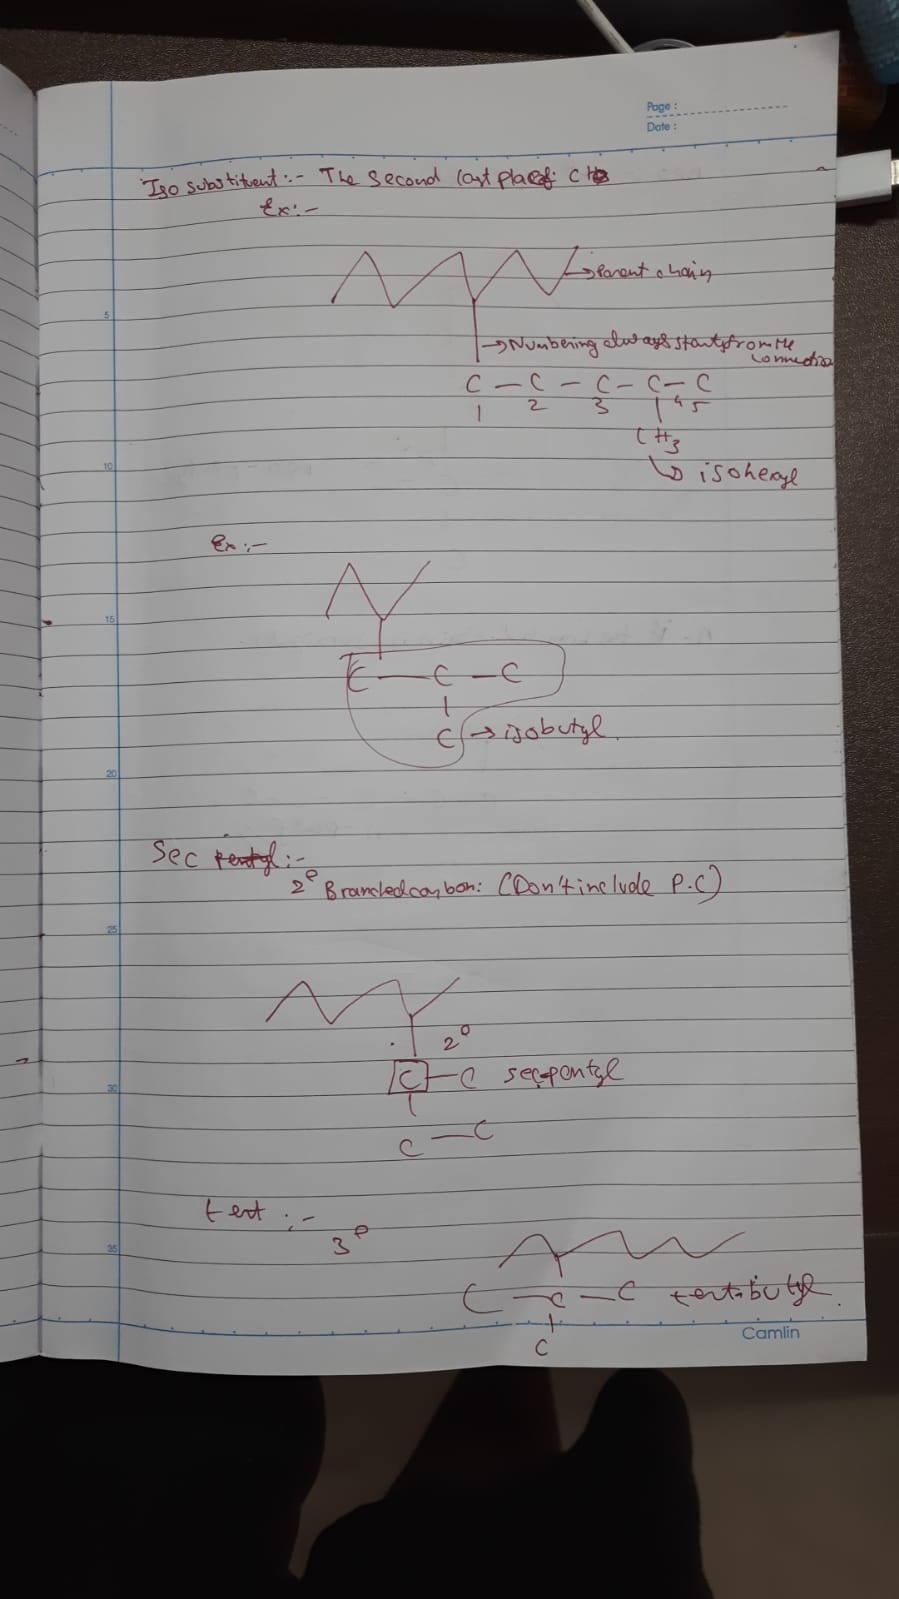 Page :
Date :
Iso substituent :- The second last place: CH
Ex:-
→ Parent chain
5
→ Numbering always starts from the
connection
C - C - C - C - C
1 2 3 4 5
CH3
10
↳ isohexyl
Ex :-
15
C - C - C
C → isobutyl
20
Sec pentyl :-
2° Branched carbon: (Don't include P.C)
25
2°
C - C sec-pentyl
30
C - C
tert :-
3°
35
C - C - C tert-butyl
C
Camlin